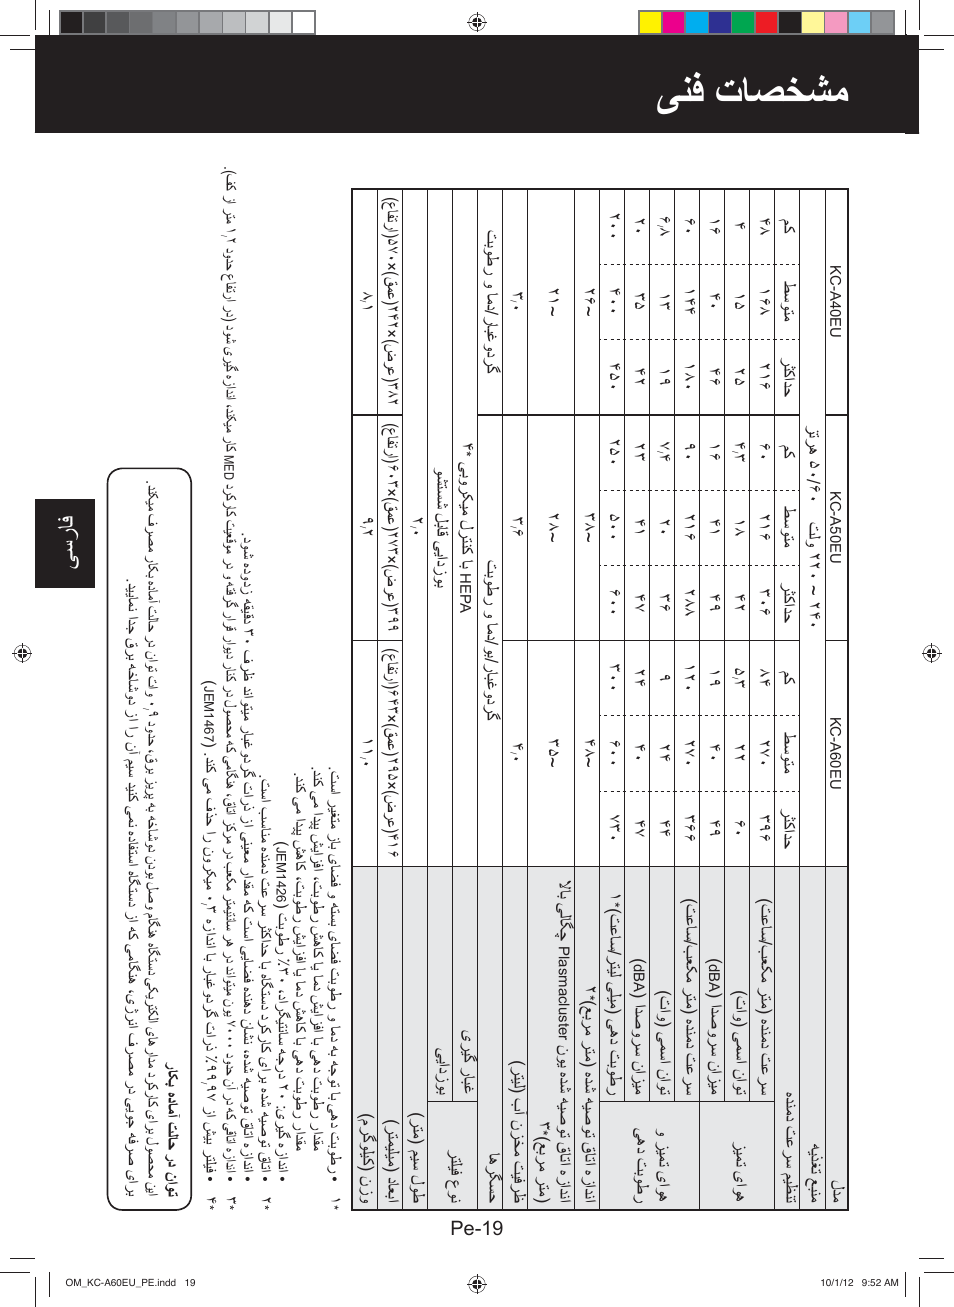 مشخصات فنی
فارسی
مدل KC-A60EU KC-A50EU KC-A40EU
منبع تغذیه ۲۴۰ ~ ۲۲۰ ولت ۵۰/۶۰ هرتز
تنظیم سرعت دمنده حداکثر متوسط کم حداکثر متوسط کم حداکثر متوسط کم
هوای تمیز سرعت دمنده (متر مکعب/ساعت) ۳۹۶ ۲۷۰ ۸۴ ۳۰۶ ۲۱۶ ۶۰ ۲۱۶ ۱۶۸ ۴۸
توان اسمی (وات) ۶۰ ۲۲ ۵٫۳ ۴۲ ۱۸ ۴٫۳ ۲۵ ۱۵ ۴
میزان سروصدا (dBA) ۴۹ ۴۰ ۱۹ ۴۹ ۴۱ ۱۶ ۴۶ ۴۰ ۱۶
هوای تمیز و رطوبت دهی سرعت دمنده (متر مکعب/ساعت) ۳۶۶ ۲۷۰ ۱۲۰ ۲۸۸ ۲۱۶ ۹۰ ۱۸۰ ۱۴۴ ۶۰
توان اسمی (وات) ۴۴ ۲۴ ۹ ۳۶ ۲۰ ۷٫۴ ۱۹ ۱۳ ۶٫۸
میزان سروصدا (dBA) ۴۷ ۴۰ ۲۴ ۴۷ ۴۱ ۲۳ ۴۲ ۳۵ ۲۰
رطوبت دهی (میلی لیتر/ساعت)*۱ ۷۳۰ ۶۰۰ ۳۰۰ ۶۰۰ ۵۰۰ ۲۵۰ ۴۵۰ ۴۰۰ ۲۰۰
اندازه اتاق توصیه شده (متر مربع)*۲ ~۴۸ ~۳۸ ~۲۶
اندازه اتاق توصیه شده یون Plasmacluster چگالی بالا (متر مربع)*۳ ~۳۵ ~۲۸ ~۲۱
ظرفیت مخزن آب (لیتر) ۴٫۰ ۳٫۶ ۳٫۰
حسگرها گردوغبار/بو/دما و رطوبت گردوغبار/دما و رطوبت
نوع فیلتر غبار گیری HEPA با کنترل میکروبی *۴
بوزدایی بوزدایی قابل شستشو
طول سیم (متر) ۲٫۰
ابعاد (میلیمتر) ۴۱۶(عرض)x۲۹۵(عمق)x۶۴۳(ارتفاع) ۳۹۹(عرض)x۲۷۳(عمق)x۶۰۳(ارتفاع) ۳۸۲(عرض)x۲۴۲(عمق)x۵۷۰(ارتفاع)
وزن (کیلوگرم) ۱۱٫۰ ۹٫۲ ۸٫۱
*۱ • رطوبت دهی با توجه به دما و رطوبت فضای بسته و فضای باز متغیر است.
مقدار رطوبت دهی با افزایش دما یا کاهش رطوبت، افزایش پیدا می کند.
مقدار رطوبت دهی با کاهش دما یا افزایش رطوبت، کاهش پیدا می کند.
• اندازه گیری: ۲۰ درجه سانتیگراد، ۳۰٪ رطوبت (JEM1426)
*۲ • اتاق توصیه شده برای کارکرد دستگاه با حداکثر سرعت دمنده مناسب است.
• اندازه اتاق توصیه شده، نشان دهنده فضایی است که مقدار معینی از ذرات گردوغبار میتواند ظرف ۳۰ دقیقه زدوده شود.
*۳ • اندازه اتاقی که در آن حدود ۷۰۰۰ یون میتواند در هر سانتیمتر مکعب در مرکز اتاق، هنگامی که محصول در کنار دیوار قرار گرفته و در موقعیت کارکرد MED کار میکند، اندازه گیری شود (در ارتفاع حدود ۱٫۲ متر از کف).
*۴ • فیلتر بیش از ۹۹٫۹۷٪ ذرات گردوغبار با اندازه ۰٫۳ میکرون را حذف می کند. (JEM1467)
توان در حالت آماده بکار
این محصول برای کارکرد مدارهای الکتریکی دستگاه هنگام وصل بودن دوشاخه به پریز برق، حدود ۰٫۹ وات توان در حالت آماده بکار مصرف میکند.
برای صرفه جویی در مصرف انرژی، هنگامی که از دستگاه استفاده نمی کنید سیم آن را از دوشاخه برق جدا نمایید.
Pe-19
OM_KC-A60EU_PE.indd 19 10/1/12 9:52 AM